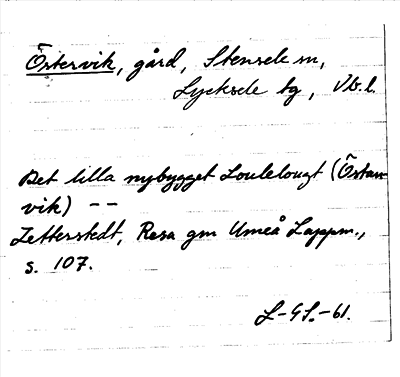 Östervik, gård, Stensele sn,
Lycksele tg, Vb.l.
Det lilla nybygget Loulelougt (Östan-
vik) --
Zetterstedt, Resa gm Umeå Lappm.,
s. 107.
L-GS.-61.